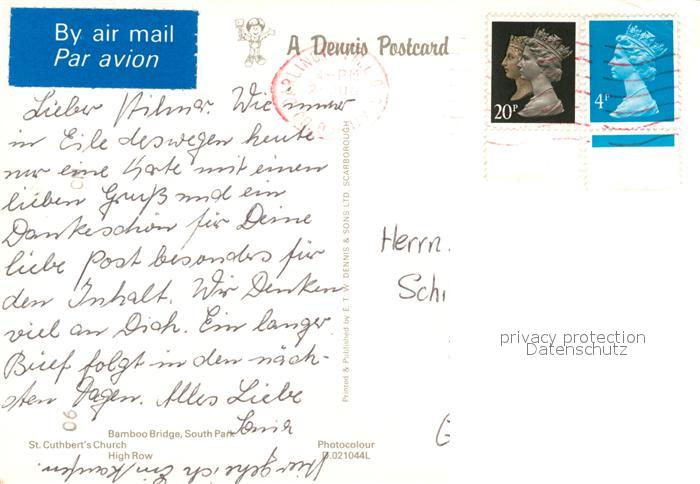 By air mail
Par avion
A Dennis Postcard
20P
4P
Lieber Hilmar. Wie immer
in Eile deswegen heute
nur eine Karte mit einen
lieben Gruß und ein
Dankeschön für Deine
liebe Post besonders für
den Inhalt. Wir Denken
viel an Dich. Ein langer
Brief folgt in den näch-
sten Tagen. Alles Liebe
Printed & Published by E. T. W. DENNIS & SONS LTD SCARBOROUGH
Herrn.
Schi
privacy protection
Datenschutz
Bamboo Bridge, South Park
St. Cuthbert's Church
High Row
Photocolour
D.021044L
Hier geh ich Einkaufen.